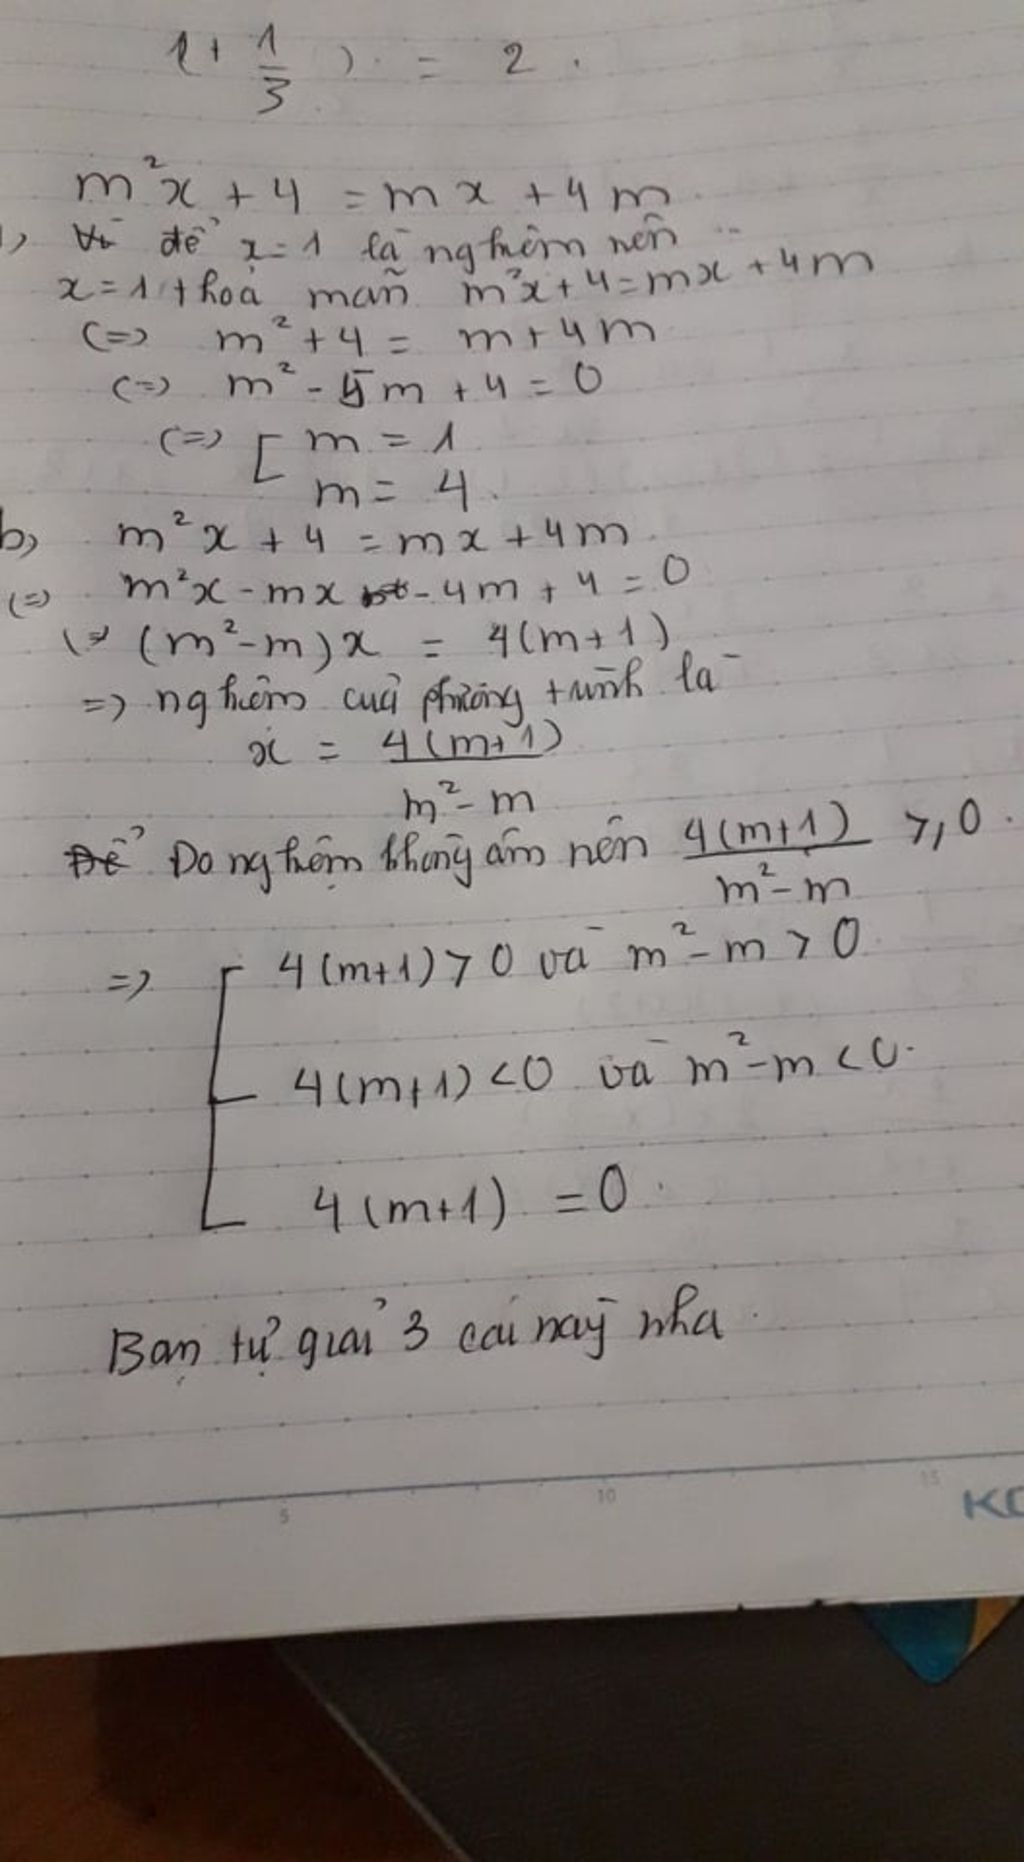 1 + 1/3 ) = 2 .
m²x + 4 = mx + 4m
), để x = 1 là nghiệm nên
x = 1 thoả mãn m²x + 4 = mx + 4m
(=) m² + 4 = m + 4m
(=) m² - 5m + 4 = 0
(=) [ m = 1
m = 4.
b, m²x + 4 = mx + 4m
(=) m²x - mx - 4m + 4 = 0
(=) (m² - m)x = 4(m+1)
=> nghiệm của phương trình là
x = 4(m+1) / m² - m
Do nghiệm không âm nên 4(m+1) / m² - m ≥ 0.
=> [ 4(m+1) > 0 và m² - m > 0
4(m+1) < 0 và m² - m < 0.
4(m+1) = 0.
Bạn tự giải 3 cái này nha
5 10 15